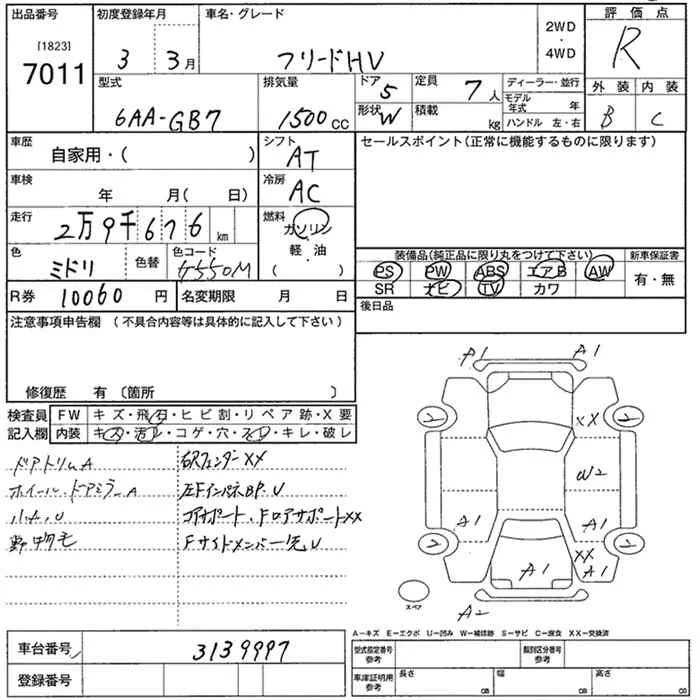 出品番号 初度登録年月 車名・グレード 2WD・4WD 評価点
[1823]
7011 3 3月 フリードHV R
型式 排気量 ドア 5 定員 7人 ディーラー・並行 外装 内装
6AA-GB7 1500cc 形状 W 積載 kg モデル年式 年 B C
ハンドル 左・右
車歴 自家用・( ) シフト AT セールスポイント(正常に機能するものに限ります)
車検 年 月( 日) 冷房 AC
走行 2万9千676km 燃料 ガソリン・軽・油 ( )
色 ミドリ 色替 色コード 装備品(純品に限り丸をつけて下さい) 新車保証書
PS PW ABS エアB AW 有・無
R券 10060円 名変期限 月 日 SR ナビ TV カワ
注意事項申告欄(不具合内容等は具体的に記入して下さい) 後日品
修復歴 有(箇所 )
検査員 FW キズ・飛石・ヒビ割・リペア跡・X要
記入欄 内装 キズ・汚レ・コゲ・穴・スレ・キレ・破レ
ドアトリムA 右RフェンダーXX
ホイール、ドアミラーA 左FインパネBP、U
小A、U コアサポート、FロアサポートXX
Fサイドメンバー先U
A1 A1
2 XX 2
W2
A1 A1
2 XX 2
A1 A1
スペア A2
A−キズ E−エクボ U−凹み W−補修跡 S−サビ C−腐食 XX−交換済
車台番号 3139997 型式指定番号 参考 類別区分番号 参考
登録番号 車庫証明用 参考 長さ cm 幅 cm 高さ cm